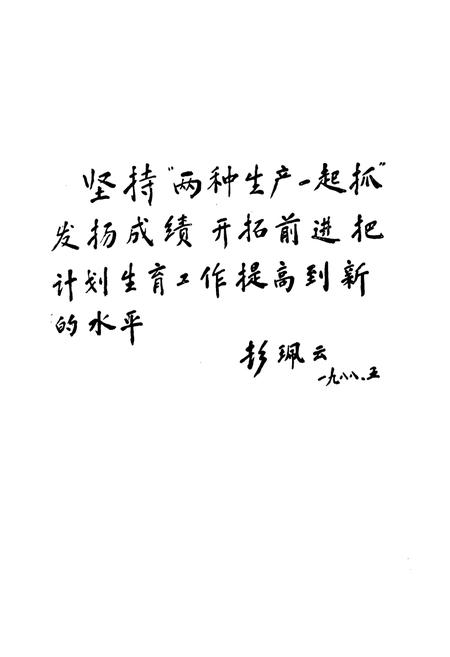 坚持"两种生产一起抓"
发扬成绩 开拓前进 把
计划生育工作提高到新
的水平
彭珮云
一九八八.五